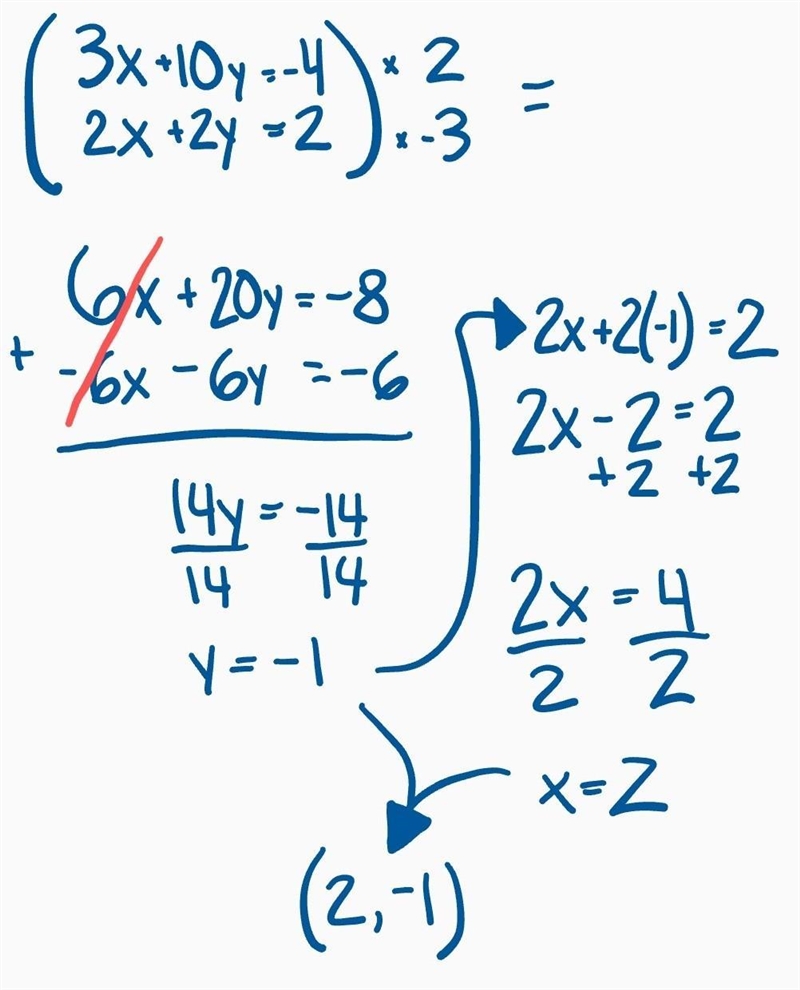 (3x+10y=-4) × 2 =
(2x+2y=2) × -3
6x+20y=-8
+ -6x-6y=-6
14y=-14
14 14
y=-1
2x+2(-1)=2
2x-2=2
+2 +2
2x=4
2 2
x=2
(2,-1)